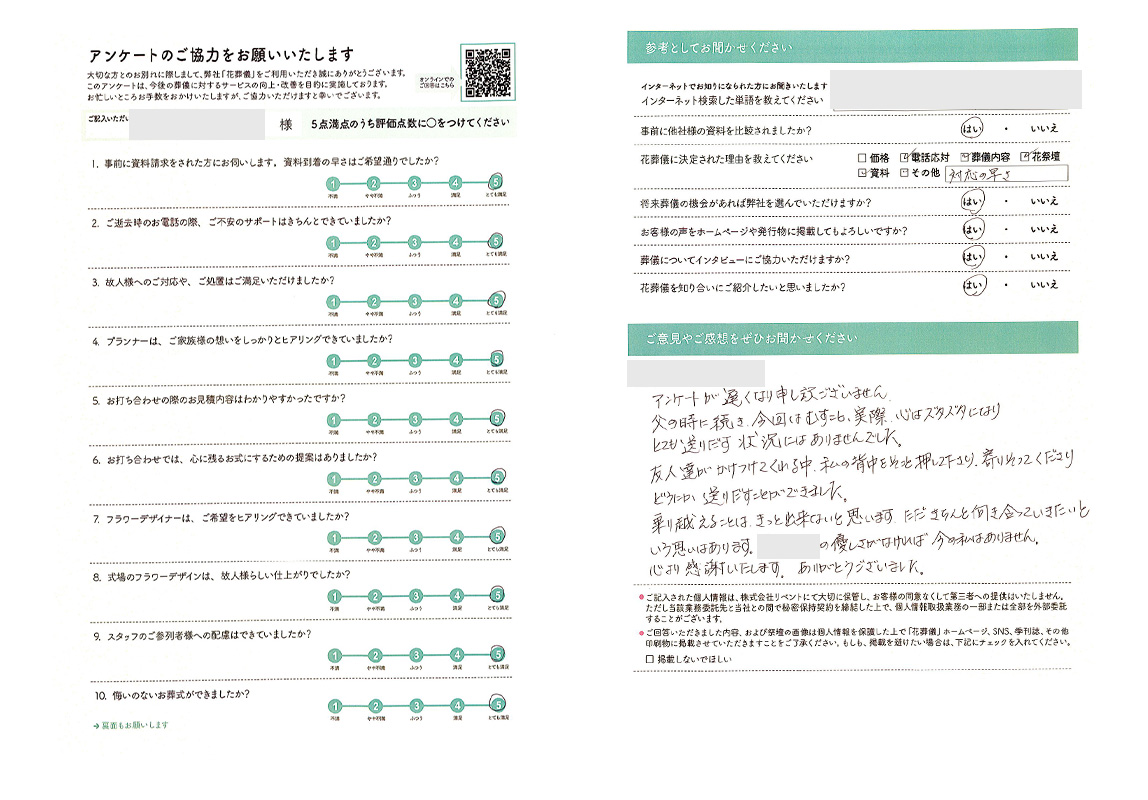 アンケートのご協力をお願いいたします
大切な方とのお別れに際しまして、弊社「花葬儀」をご利用いただき誠にありがとうございます。
このアンケートは、今後の葬儀に対するサービスの向上・改善を目的に実施しております。
お忙しいところお手数をおかけいたしますが、ご協力いただけますと幸いでございます。
オンラインでの
ご回答はこちら
ご記入いただい
様
5点満点のうち評価点数に〇をつけてください
1. 事前に資料請求をされた方にお伺いします。資料到着の早さはご希望通りでしたか?
1 2 3 4 5
不満 やや不満 ふつう 満足 とても満足
2. ご逝去時のお電話の際、ご不安のサポートはきちんとできていましたか?
1 2 3 4 5
不満 やや不満 ふつう 満足 とても満足
3. 故人様へのご対応や、ご処置はご満足いただけましたか?
1 2 3 4 5
不満 やや不満 ふつう 満足 とても満足
4. プランナーは、ご家族様の想いをしっかりとヒアリングできていましたか?
1 2 3 4 5
不満 やや不満 ふつう 満足 とても満足
5. お打ち合わせの際のお見積内容はわかりやすかったですか?
1 2 3 4 5
不満 やや不満 ふつう 満足 とても満足
6. お打ち合わせでは、心に残るお式にするための提案はありましたか?
1 2 3 4 5
不満 やや不満 ふつう 満足 とても満足
7. フラワーデザイナーは、ご希望をヒアリングできていましたか?
1 2 3 4 5
不満 やや不満 ふつう 満足 とても満足
8. 式場のフラワーデザインは、故人様らしい仕上がりでしたか?
1 2 3 4 5
不満 やや不満 ふつう 満足 とても満足
9. スタッフのご参列者様への配慮はできていましたか?
1 2 3 4 5
不満 やや不満 ふつう 満足 とても満足
10. 悔いのないお葬式ができましたか?
1 2 3 4 5
不満 やや不満 ふつう 満足 とても満足
→裏面もお願いします
参考としてお聞かせください
インターネットでお知りになられた方にお聞きいたします
インターネット検索した単語を教えてください
事前に他社様の資料を比較されましたか? はい ・ いいえ
花葬儀に決定された理由を教えてください □価格 ☑電話応対 ☑葬儀内容 ☑花祭壇
☑資料 ☑その他 対応の早さ
将来葬儀の機会があれば弊社を選んでいただけますか? はい ・ いいえ
お客様の声をホームページや発行物に掲載してもよろしいですか? はい ・ いいえ
葬儀についてインタビューにご協力いただけますか? はい ・ いいえ
花葬儀を知り合いにご紹介したいと思いましたか? はい ・ いいえ
ご意見やご感想をぜひお聞かせください
アンケートが遅くなり申し訳ございません。
父の時に続き、今回はむすこと、実際、心はズタズタになり
とても送りだす状況にはありませんでした。
友人達がかけつけてくれる中、私の背中をそっと押して下さり、寄りそってくださり
どうにか送りだすことができました。
乗り越えることは、きっと出来ないと思います ただきちんと向き合っていきたいと
いう思いはあります。 の優しさがなければ今の私はありません。
心より感謝いたします。ありがとうございました。
●ご記入された個人情報は、株式会社リベントにて大切に保管し、お客様の同意なくして第三者への提供はいたしません。
ただし当該業務委託先と当社との間で秘密保持契約を締結した上で、個人情報取扱業務の一部または全部を外部委託
することがございます。
●ご回答いただきました内容、および祭壇の画像は個人情報を保護した上で「花葬儀」ホームページ、SNS、季刊誌、その他
印刷物に掲載させていただきますことをご了承ください。もしも、掲載を避けたい場合は、下記にチェックを入れてください。
□ 掲載しないでほしい